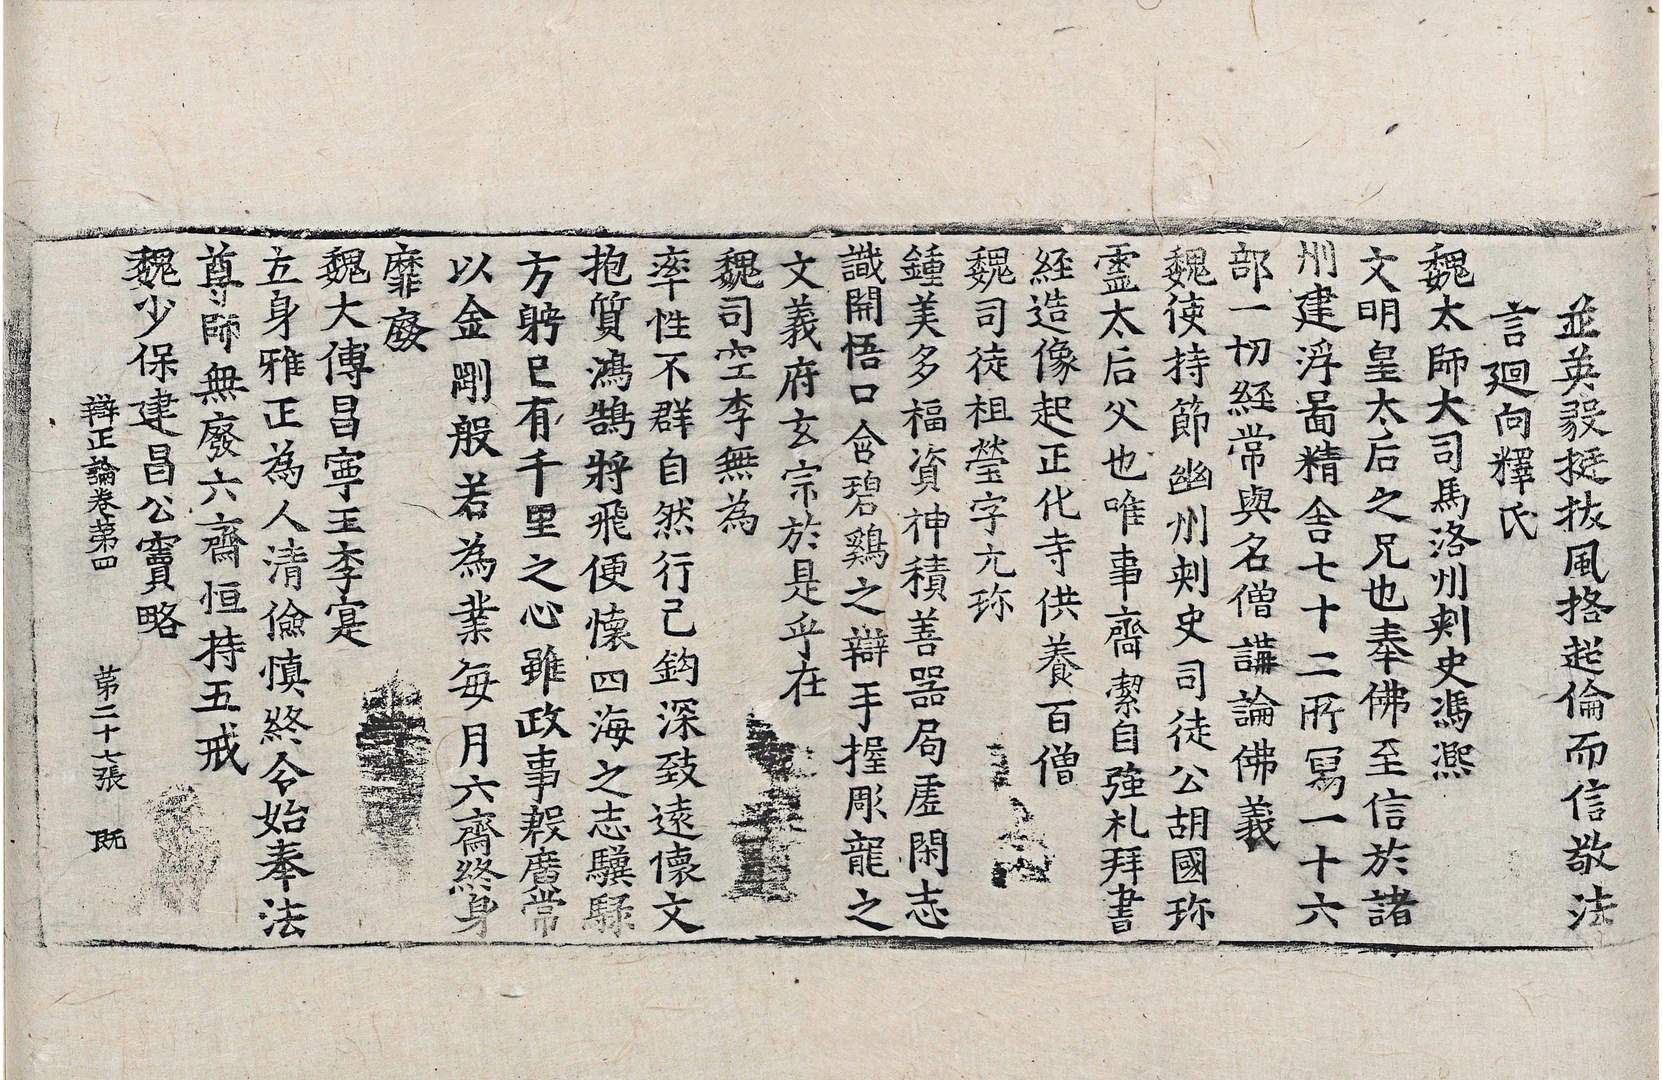 並英毅挺拔風格超倫而信敬法
言迴向釋氏
魏太師大司馬洛州刺史馮㵣
文明皇太后之兄也奉佛至信於諸
州建浮啚精舍七十二所寫一十六
部一切經常與名僧講論佛義
魏使持節幽州刺史司徒公胡國珎
靈太后父也唯事齋潔自強礼拜書
經造像起正化寺供養百僧
魏司徒祖瑩字元珎
鍾美多福資神積善器局虛閑志
識開悟口含碧鷄之辯手握彫龍之
文義府玄宗於是乎在
魏司空李無為
率性不群自然行己鈎深致遠懷文
抱質鴻鵠將飛便懷四海之志驥騄
方騁已有千里之心雖政事殷廣常
以金剛般若為業每月六齋終身
靡廢
魏大傅昌寧王李寔
立身雅正為人清儉慎終令始奉法
尊師無廢六齋恒持五戒
魏少保建昌公竇略
辯正論卷第四 第二十七張 旣